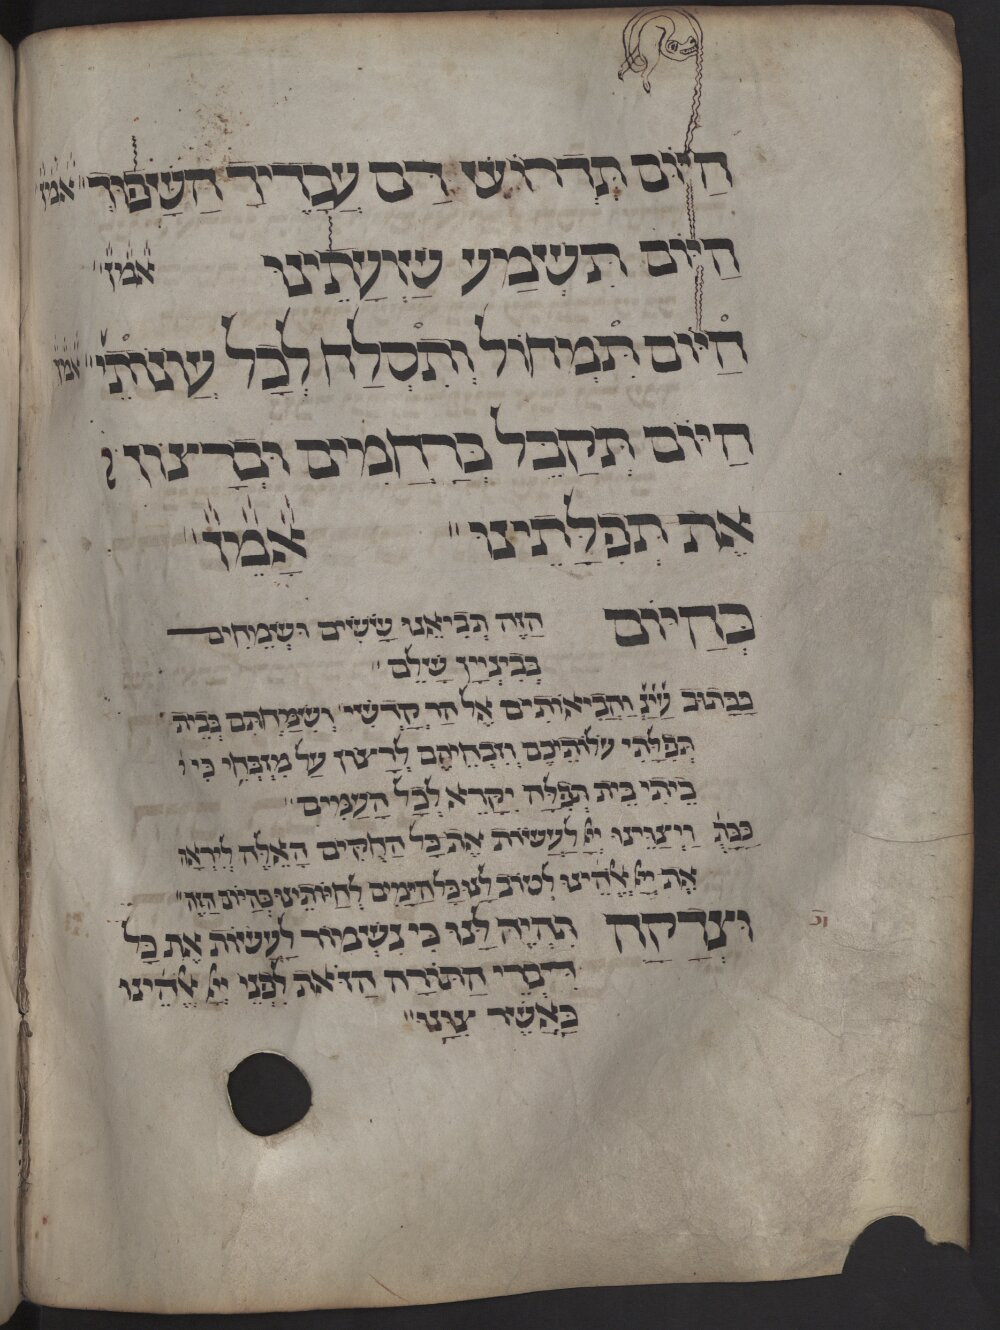 הַיּוֹם תִּדְרוֹשׁ דַם עֲבָדֶיךָ הַשָׁפוּךְ אמן
הַיּוֹם תִשְׁמַע שַׁוְעָתֵינוּ אמן
הַיּוֹם תִּמְחוֹל וְתִסְלַח לְכָל עֲוֹנוֹתֵי אמן
הַיּוֹם תְּקַבֵּל בְּרַחֲמִים וּבְרָצוֹן
אֶת תְּפִלָּתֵינוּ אָמֵן
כְּהַיּוֹם הַזֶה תְּבִיאֵנוּ שָׂשִׂים וּשְׂמֵחִים
בְּבִנְיָין שָׁלֵם
כַּכָּתוּב וַהֲבִיאוֹתִים אֶל הַר קָדְשִׁי וְשִׂמַּחְתִּם בְּבֵית
תְּפִלָּתִי עוֹלוֹתֵיהֶם וְזִבְחֵיהֶם לְרָצוֹן עַל מִזְבְּחִי כִּי
בֵיתִי בֵּית תְּפִלָּה יִקָּרֵא לְכָל הָעַמִּים
ככת וַיְצַוֵּינוּ יְיָ לַעֲשׂוֹת אֶת כָּל הַחֻקִּים הָאֵלֶּה לְיִרְאָה
אֶת יְיָ אֱלֹהֵינוּ לְטוֹב לָנוּ כָּל הַיָּמִים לְחַיּוֹתֵינוּ כְּהַיּוֹם הַזֶּה
וּצְדָקָה תִּהְיֶה לָּנוּ כִּי נִשְׁמוֹר לַעֲשׂוֹת אֶת כָּל
דִּבְרֵי הַתּוֹרָה הַזֹּאת לִפְנֵי יְיָ אֱלֹהֵינוּ
כַּאֲשֶׁר צִוָּנוּ